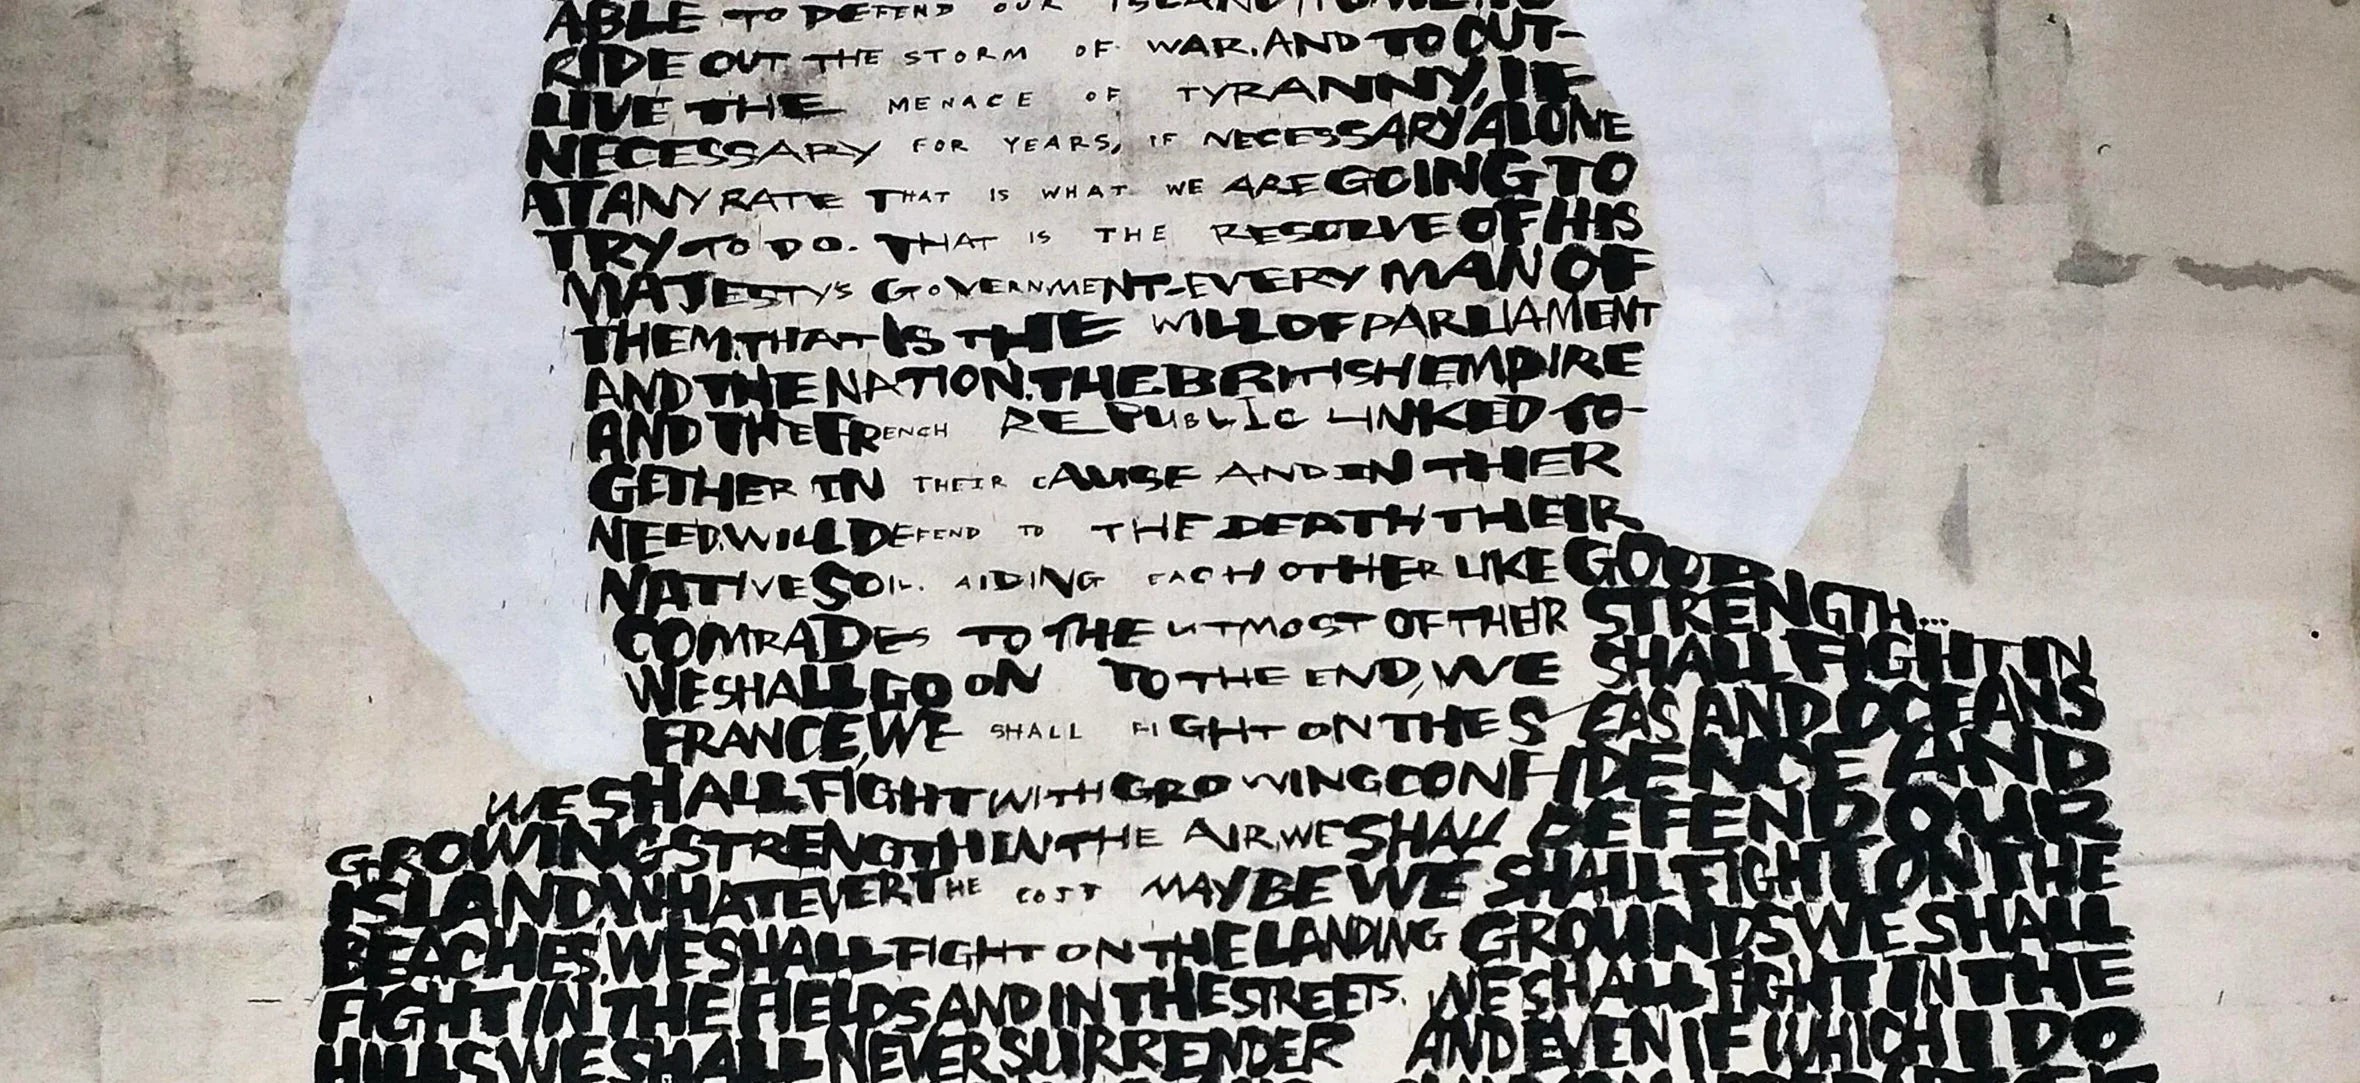 ABLE TO DEFEND OUR ISLAND HOME, TO
RIDE OUT THE STORM OF WAR, AND TO OUT-
LIVE THE MENACE OF TYRANNY, IF
NECESSARY FOR YEARS, IF NECESSARY ALONE
AT ANY RATE THAT IS WHAT WE ARE GOING TO
TRY TO DO. THAT IS THE RESOLVE OF HIS
MAJESTY'S GOVERNMENT-EVERY MAN OF
THEM. THAT IS THE WILL OF PARLIAMENT
AND THE NATION. THE BRITISH EMPIRE
AND THE FRENCH REPUBLIC LINKED TO-
GETHER IN THEIR CAUSE AND IN THEIR
NEED, WILL DEFEND TO THE DEATH THEIR
NATIVE SOIL. AIDING EACH OTHER LIKE GOOD
COMRADES TO THE UTMOST OF THEIR STRENGTH...
WE SHALL GO ON TO THE END, WE SHALL FIGHT IN
FRANCE, WE SHALL FIGHT ON THE SEAS AND OCEANS
WE SHALL FIGHT WITH GROWING CONFIDENCE AND
GROWING STRENGTH IN THE AIR, WE SHALL DEFEND OUR
ISLAND, WHATEVER THE COST MAY BE WE SHALL FIGHT ON THE
BEACHES, WE SHALL FIGHT ON THE LANDING GROUNDS WE SHALL
FIGHT IN THE FIELDS AND IN THE STREETS, WE SHALL FIGHT IN THE
HILLS WE SHALL NEVER SURRENDER AND EVEN IF WHICH I DO